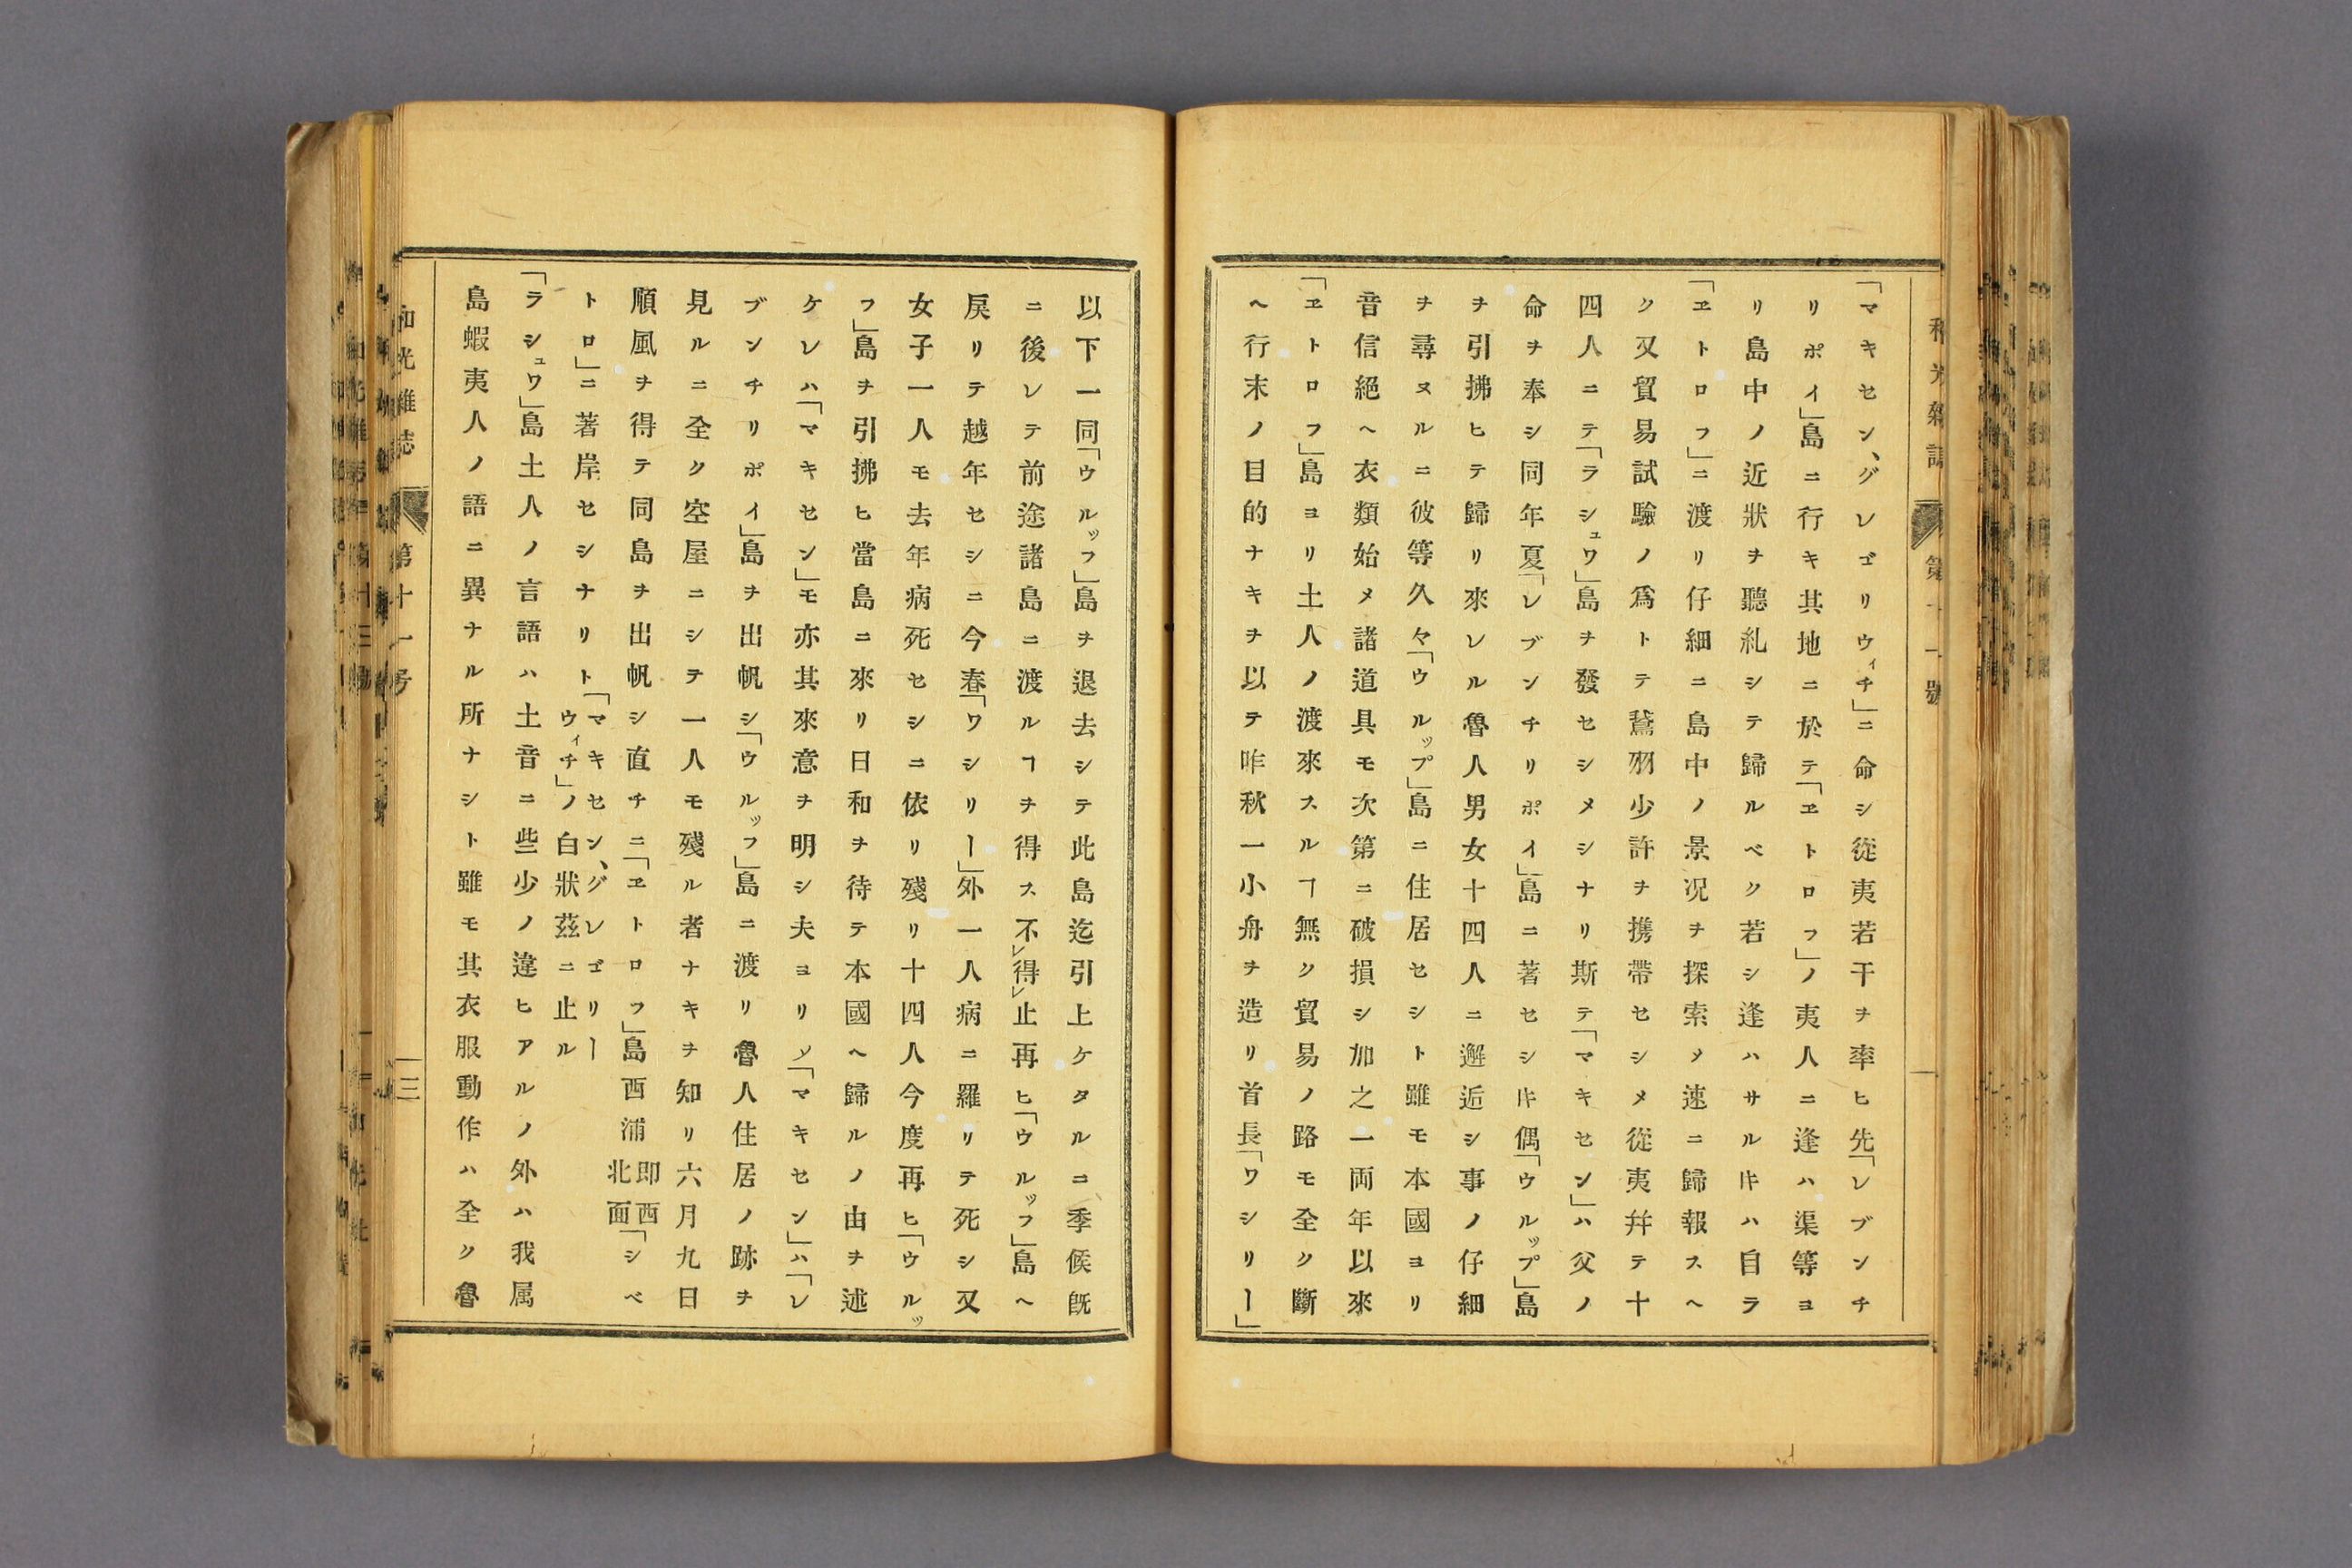 「マキセン、グレゴリウィチ」ニ命シ從夷若干ヲ率ヒ先「レブンチ
リポイ」島ニ行キ其地ニ於テ「ヱトロフ」ノ夷人ニ逢ハ渠等ヨ
リ島中ノ近狀ヲ聽糺シテ歸ルベク若シ逢ハサルキハ自ラ
「ヱトロフ」ニ渡リ仔細ニ島中ノ景况ヲ探索メ速ニ歸報スヘ
ク又貿易試驗ノ爲トテ鷲羽少許ヲ携帶セシメ從夷幷テ十
四人ニテ「ラシュワ」島ヲ發セシメシナリ斯テ「マキセン」ハ父ノ
命ヲ奉シ同年夏「レブンチリポイ」島ニ著セシキ偶「ウルップ」島
ヲ引拂ヒテ歸リ來レル魯人男女十四人ニ邂逅シ事ノ仔細
ヲ尋ヌルニ彼等久々「ウルップ」島ニ住居セシト雖モ本國ヨリ
音信絕ヘ衣類始メ諸道具モ次第ニ破損シ加之一両年以來
「ヱトロフ」島ヨリ土人ノ渡來スルヿ無ク貿易ノ路モ全ク斷
ヘ行末ノ目的ナキヲ以テ昨秋一小舟ヲ造リ首長「ワシリー」
以下一同「ウルッフ」島ヲ退去シテ此島迄引上ケタルニ季候旣
ニ後レテ前途諸島ニ渡ルヿヲ得ス不レ得レ止再ヒ「ウルッフ」島ヘ
戾リテ越年セシニ今春「ワシリー」外一人病ニ羅リテ死シ又
女子一人モ去年病死セシニ依リ殘リ十四人今度再ヒ「ウルッ
フ」島ヲ引拂ヒ當島ニ來リ日和ヲ待テ本國ヘ歸ルノ由ヲ述
ケレハ「マキセン」モ亦其來意ヲ明シ夫ヨリソ「マキセン」ハ「レ
ブンチリポイ」島ヲ出帆シ「ウルッフ」島ニ渡リ魯人住居ノ跡ヲ
見ルニ全ク空屋ニシテ一人モ殘ル者ナキヲ知リ六月九日
順風ヲ得テ同島ヲ出帆シ直チニ「ヱトロフ」島西浦即西北面「シベ
トロ」ニ著岸セシナリト「マキセン、グレゴリーウィチ」ノ白狀茲ニ止ル
「ラシュワ」島土人ノ言語ハ土音ニ些少ノ違ヒアルノ外ハ我属
島蝦夷人ノ語ニ異ナル所ナシト雖モ其衣服動作ハ全ク魯
和光雑誌 第十一号 三